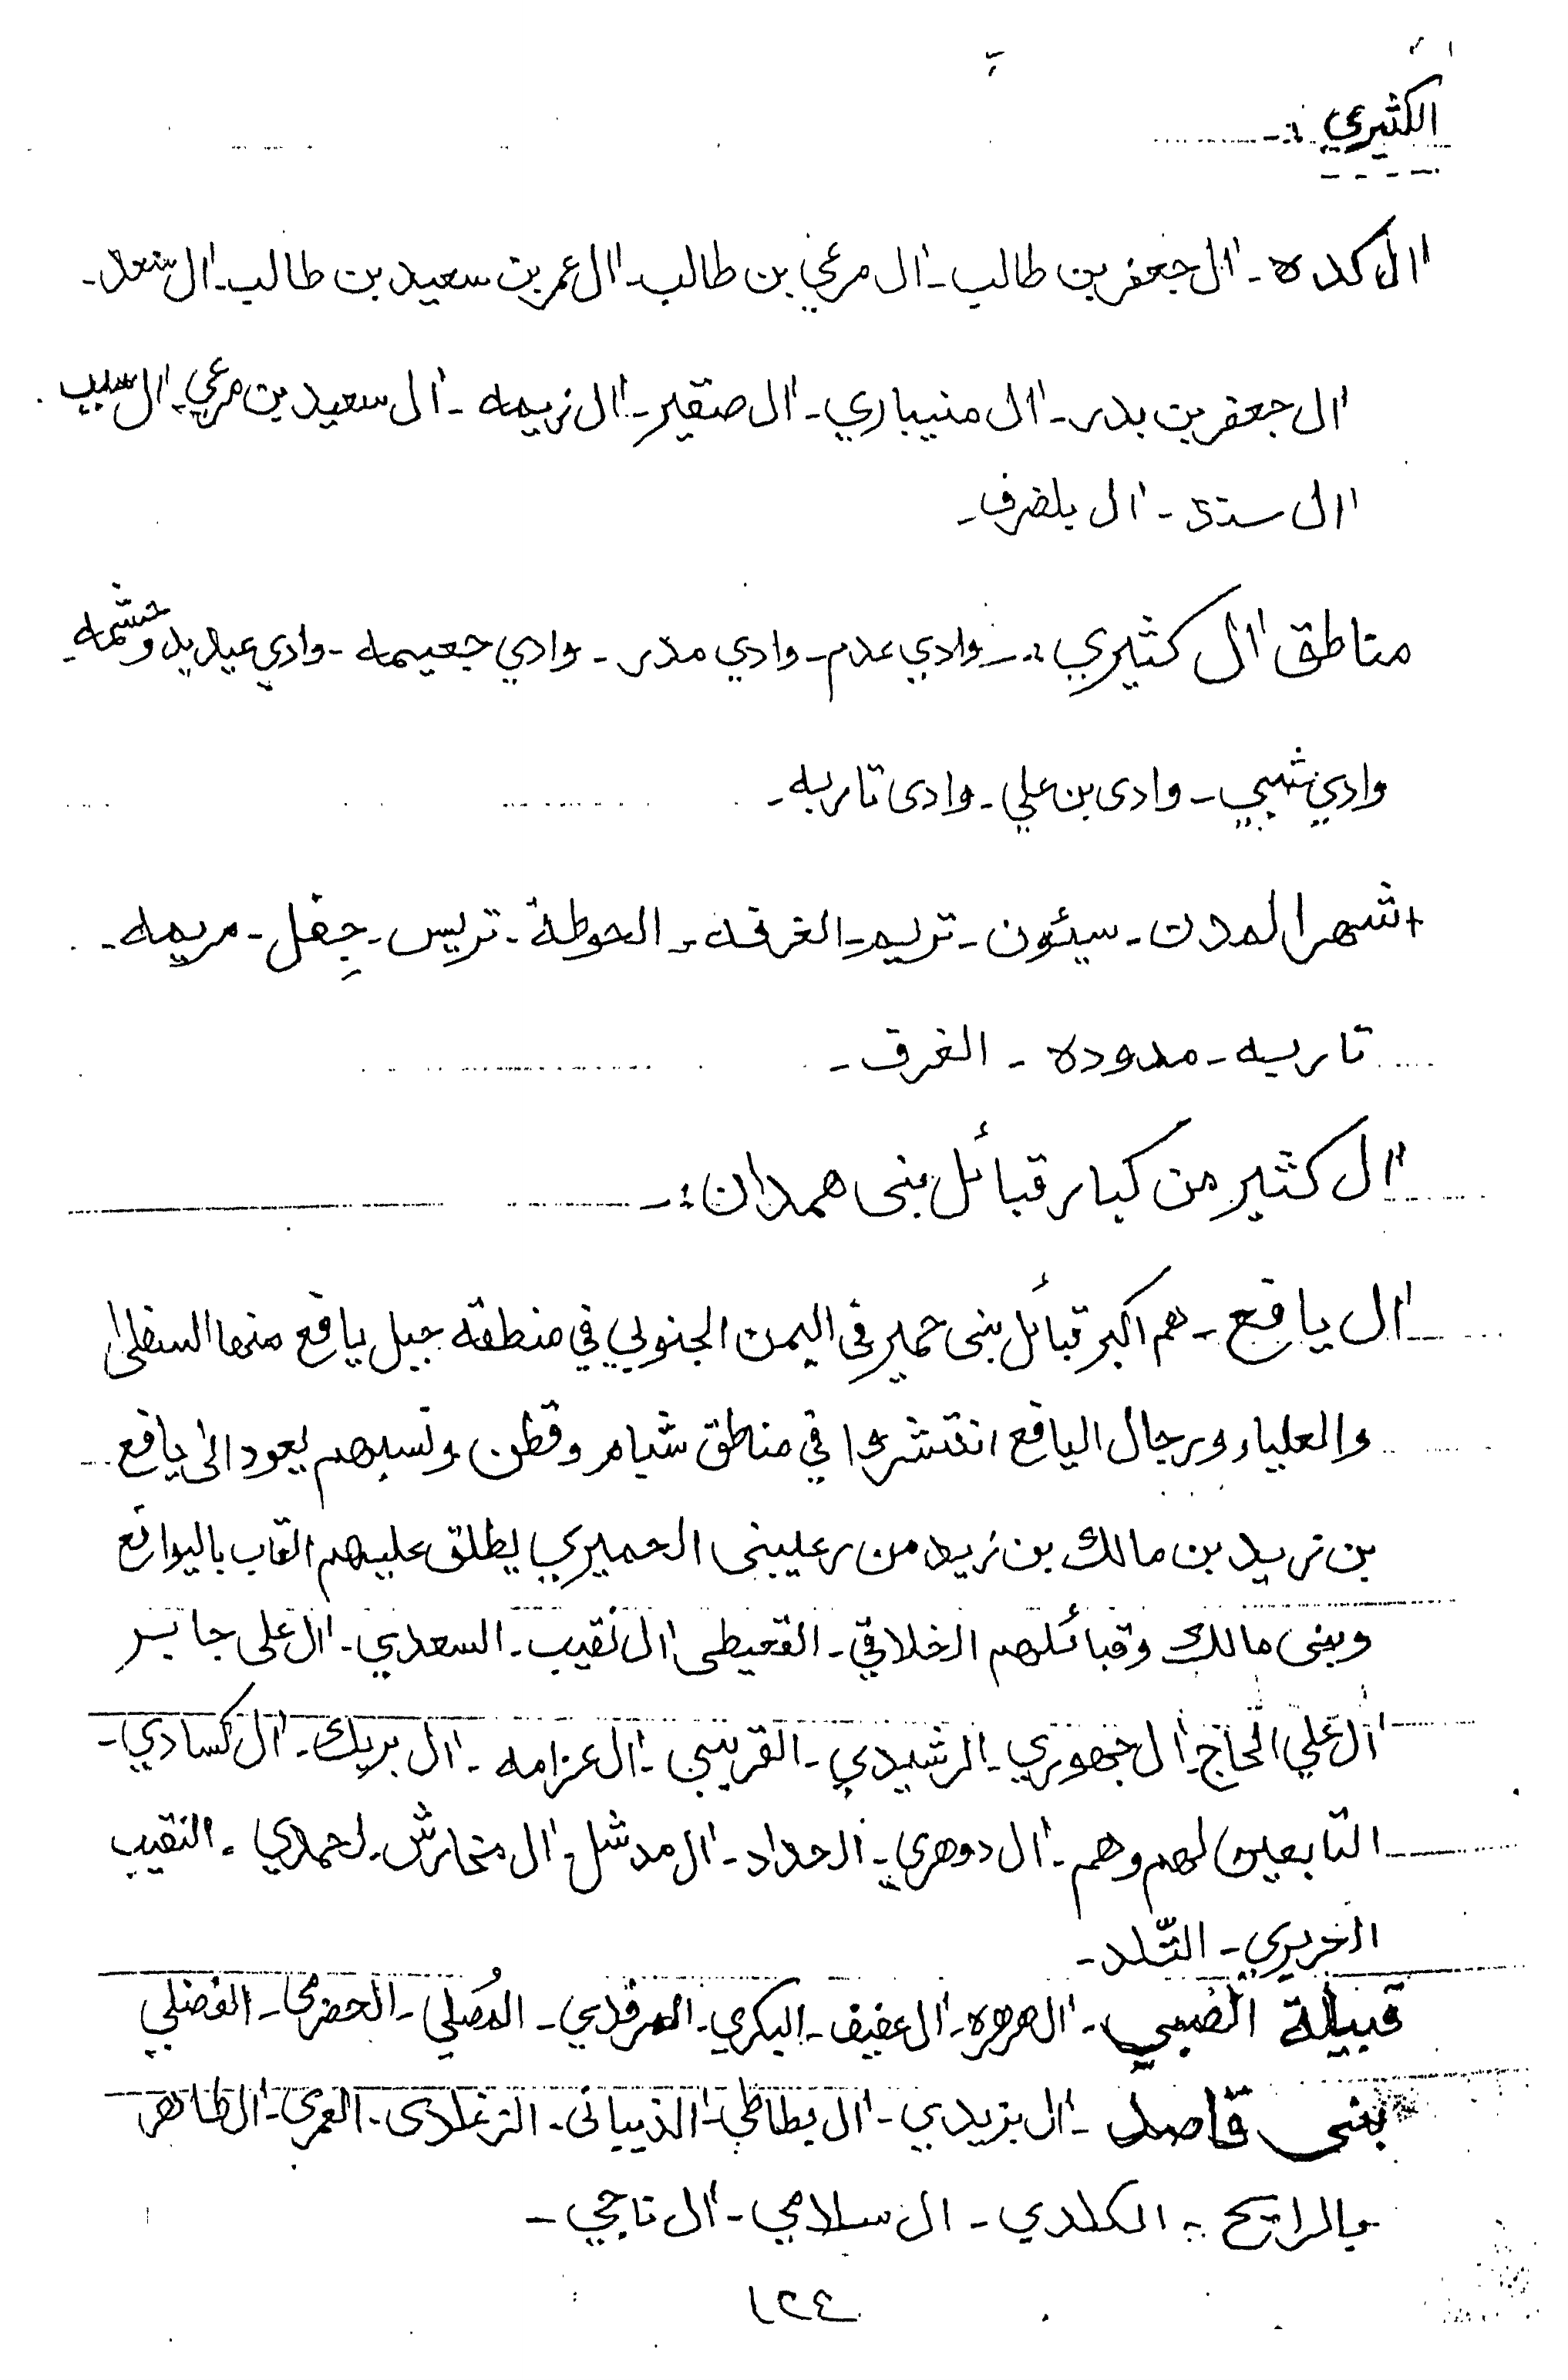 الكثيري :-
ال كده - ال جعفر بن طالب - ال مرعي بن طالب - ال عمر بن سعيد بن طالب - ال سعد -
ال جعفر بن بدر - ال منيباري - ال صقير - ال زيمه - ال سعيد بن مرعي - ال سبيب
ال سند - ال بلضرف -
مناطق ال كثيري :- وادي عدم - وادي مدر - وادي جعيمه - وادي عيديد وخشمه -
وادي شبي - وادى بن علي - وادى تاربه -
اشهر المدن - سيئون - تريم - الغرفه - الحوطة - تريس - جفل - مريمه -
تاربه - مدوده - الغرف -
ال كثير من كبار قبائل بنى همدان :-
ال يافع - هم اكبر قبائل بنى حمير في اليمن الجنوبي في منطقه جبل يافع منها السفلى
والعلياء ورجال اليافع انتشروا في مناطق شبام وقطن ونسبهم يعود الى يافع
بن زيد بن مالك بن زيد من رعيبنى الحميري يطلق عليهم القاب باليوافع
وبنى مالك وقبائلهم الخلاقي - القعيطى ال نقيب - السعدي - ال على جابر
ال علي الحاج - ال جهوري - الرشيدي - القريبي - ال عزامه - ال بريك - ال كسادي -
التابعين لهم وهم - ال دوهري - الحداد - ال مدشل - ال مخارش - لحمدي - النقيب
الخريري - التّلد -
قبيلة الضبي - ال هرهره - ال عفيف - البكري - المرفدي - المُصلي - الحضرمى - الفضلي
بنى قاصد - ال يزيدي - ال يطاطي - الذيبانى - الترغلادى - العمرى - ال طاهر
بالرابح - الكلدي - ال سلامي - ال ناجي -
١٢٤